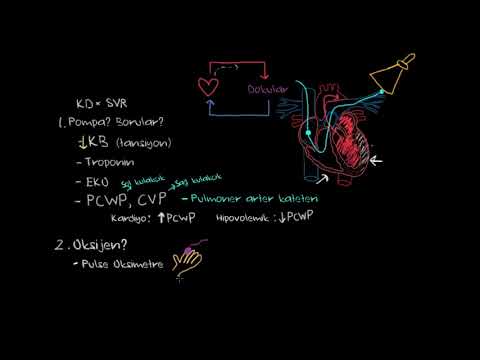 KD × SVR
1. Pompa? Borular?
↓KB (tansiyon)
- Troponin
- EKO
Sol kulakçık
Sağ kulakçık
- PCWP, CVP - Pulmoner arter kateteri
Kardiyo: ↑PCWP Hipovolemik: ↓PCWP
2. Oksijen?
- Pulse Oksimetre
Dokular